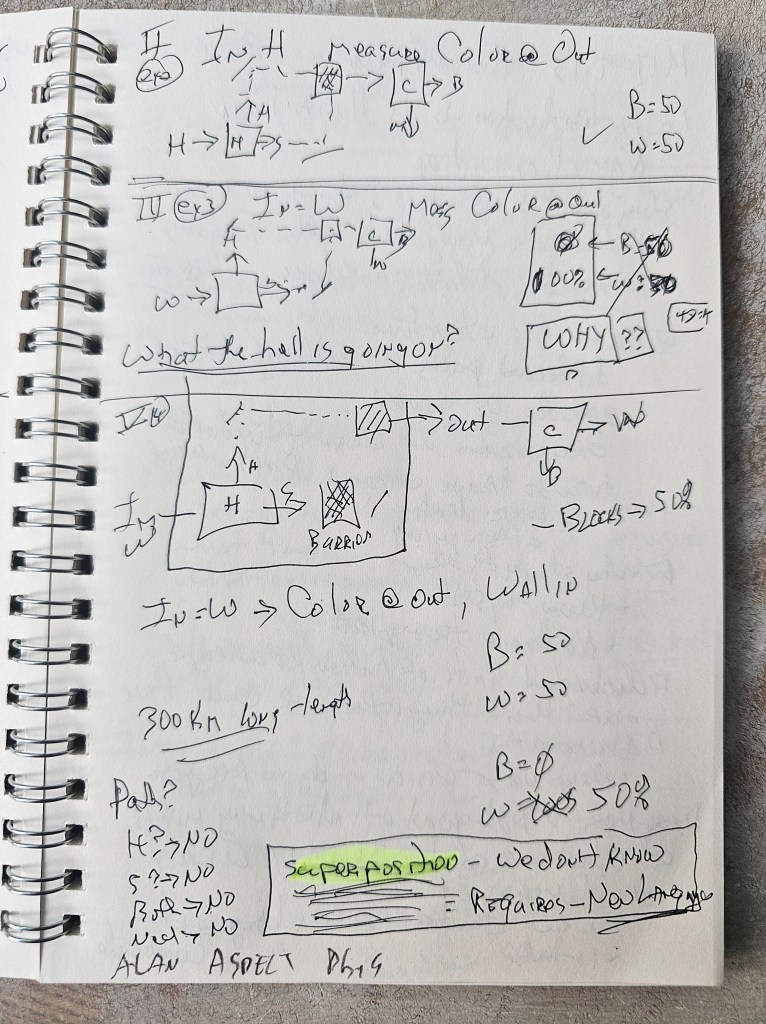 II IN H Measure Color @ Out
ex2
C → B
A
H → H → S
W
B = 50
W = 50
III ex3 IN = W Meas Color @ Out
H
C
W
W →
B = 50
100% W = 50
WHY ??
49:4
What the hell is going on?
out C → W
A
B
IN H S
W
BARRIOR
- Blocks → 50%
IN = W → Color @ Out, Wall IN
B = 50
W = 50
300 Km long -length
B = 0
W = 50%
Path?
H? → NO
S? → NO
Both → NO
→ NO
Superposition - we dont know
= Requires - New Language
ALAN ASPECT Phys